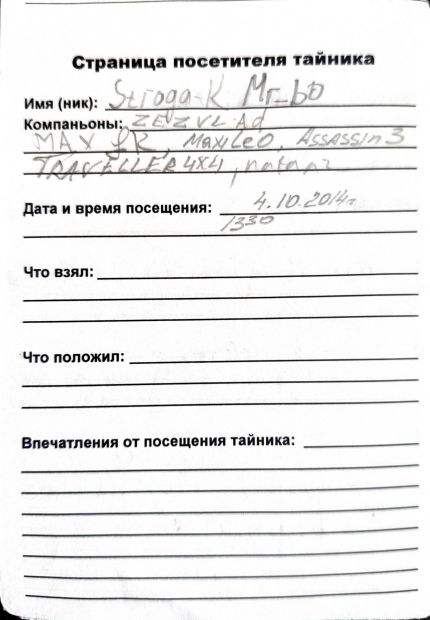 Страница посетителя тайника
Имя (ник): Stroga-K Mr_bo
Компаньоны: ZEZVLAd
MAX LR, MaxiLeo, ASSASSin3
TRAVELLER4X4,
Дата и время посещения: 4.10.2014г
1330
Что взял:
Что положил:
Впечатления от посещения тайника: